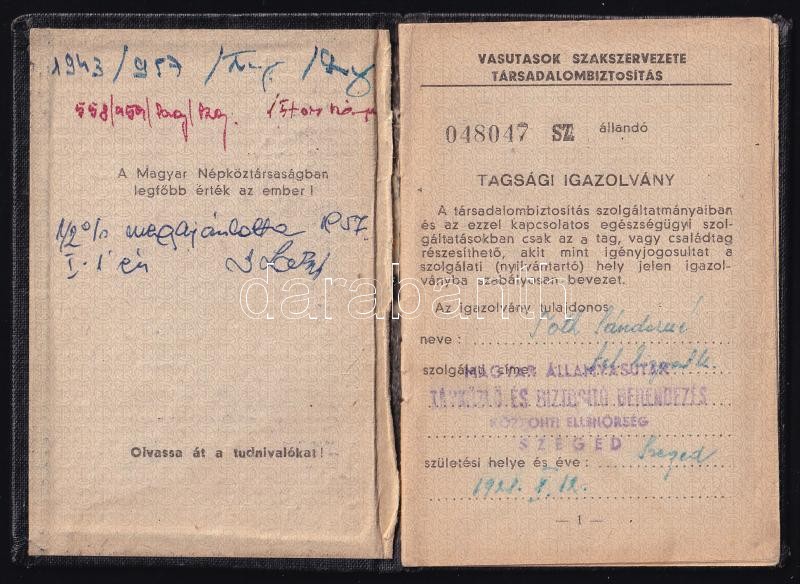 1943/957
558/959/
A Magyar Népköztársaságban
legfőbb érték az ember!
1/2% megajánlotta 1957.
I. 1 én
Olvassa át a tudnivalókat!
VASUTASOK SZAKSZERVEZETE
TÁRSADALOMBIZTOSÍTÁS
048047 SZ állandó
TAGSÁGI IGAZOLVÁNY
A társadalombiztosítás szolgáltatmányaiban
és az ezzel kapcsolatos egészségügyi szol-
gáltatásokban csak az a tag, vagy családtag
részesíthető, akit mint igényjogosultat a
szolgálati (nyilvántartó) hely jelen igazol-
ványba szabályosan bevezet.
Az igazolvány tulajdonos
neve: Tóth Sándorné
szolgálati címe:
MAGYAR ÁLLAMVASUTAK
TÁVKÖZLŐ ÉS BIZTOSITÓ BERENDEZÉS
KÖZPONTI ELLENŐRSÉG
SZEGED
születési helye és éve: Szeged
1928. 12.
— 1 —
darabanth